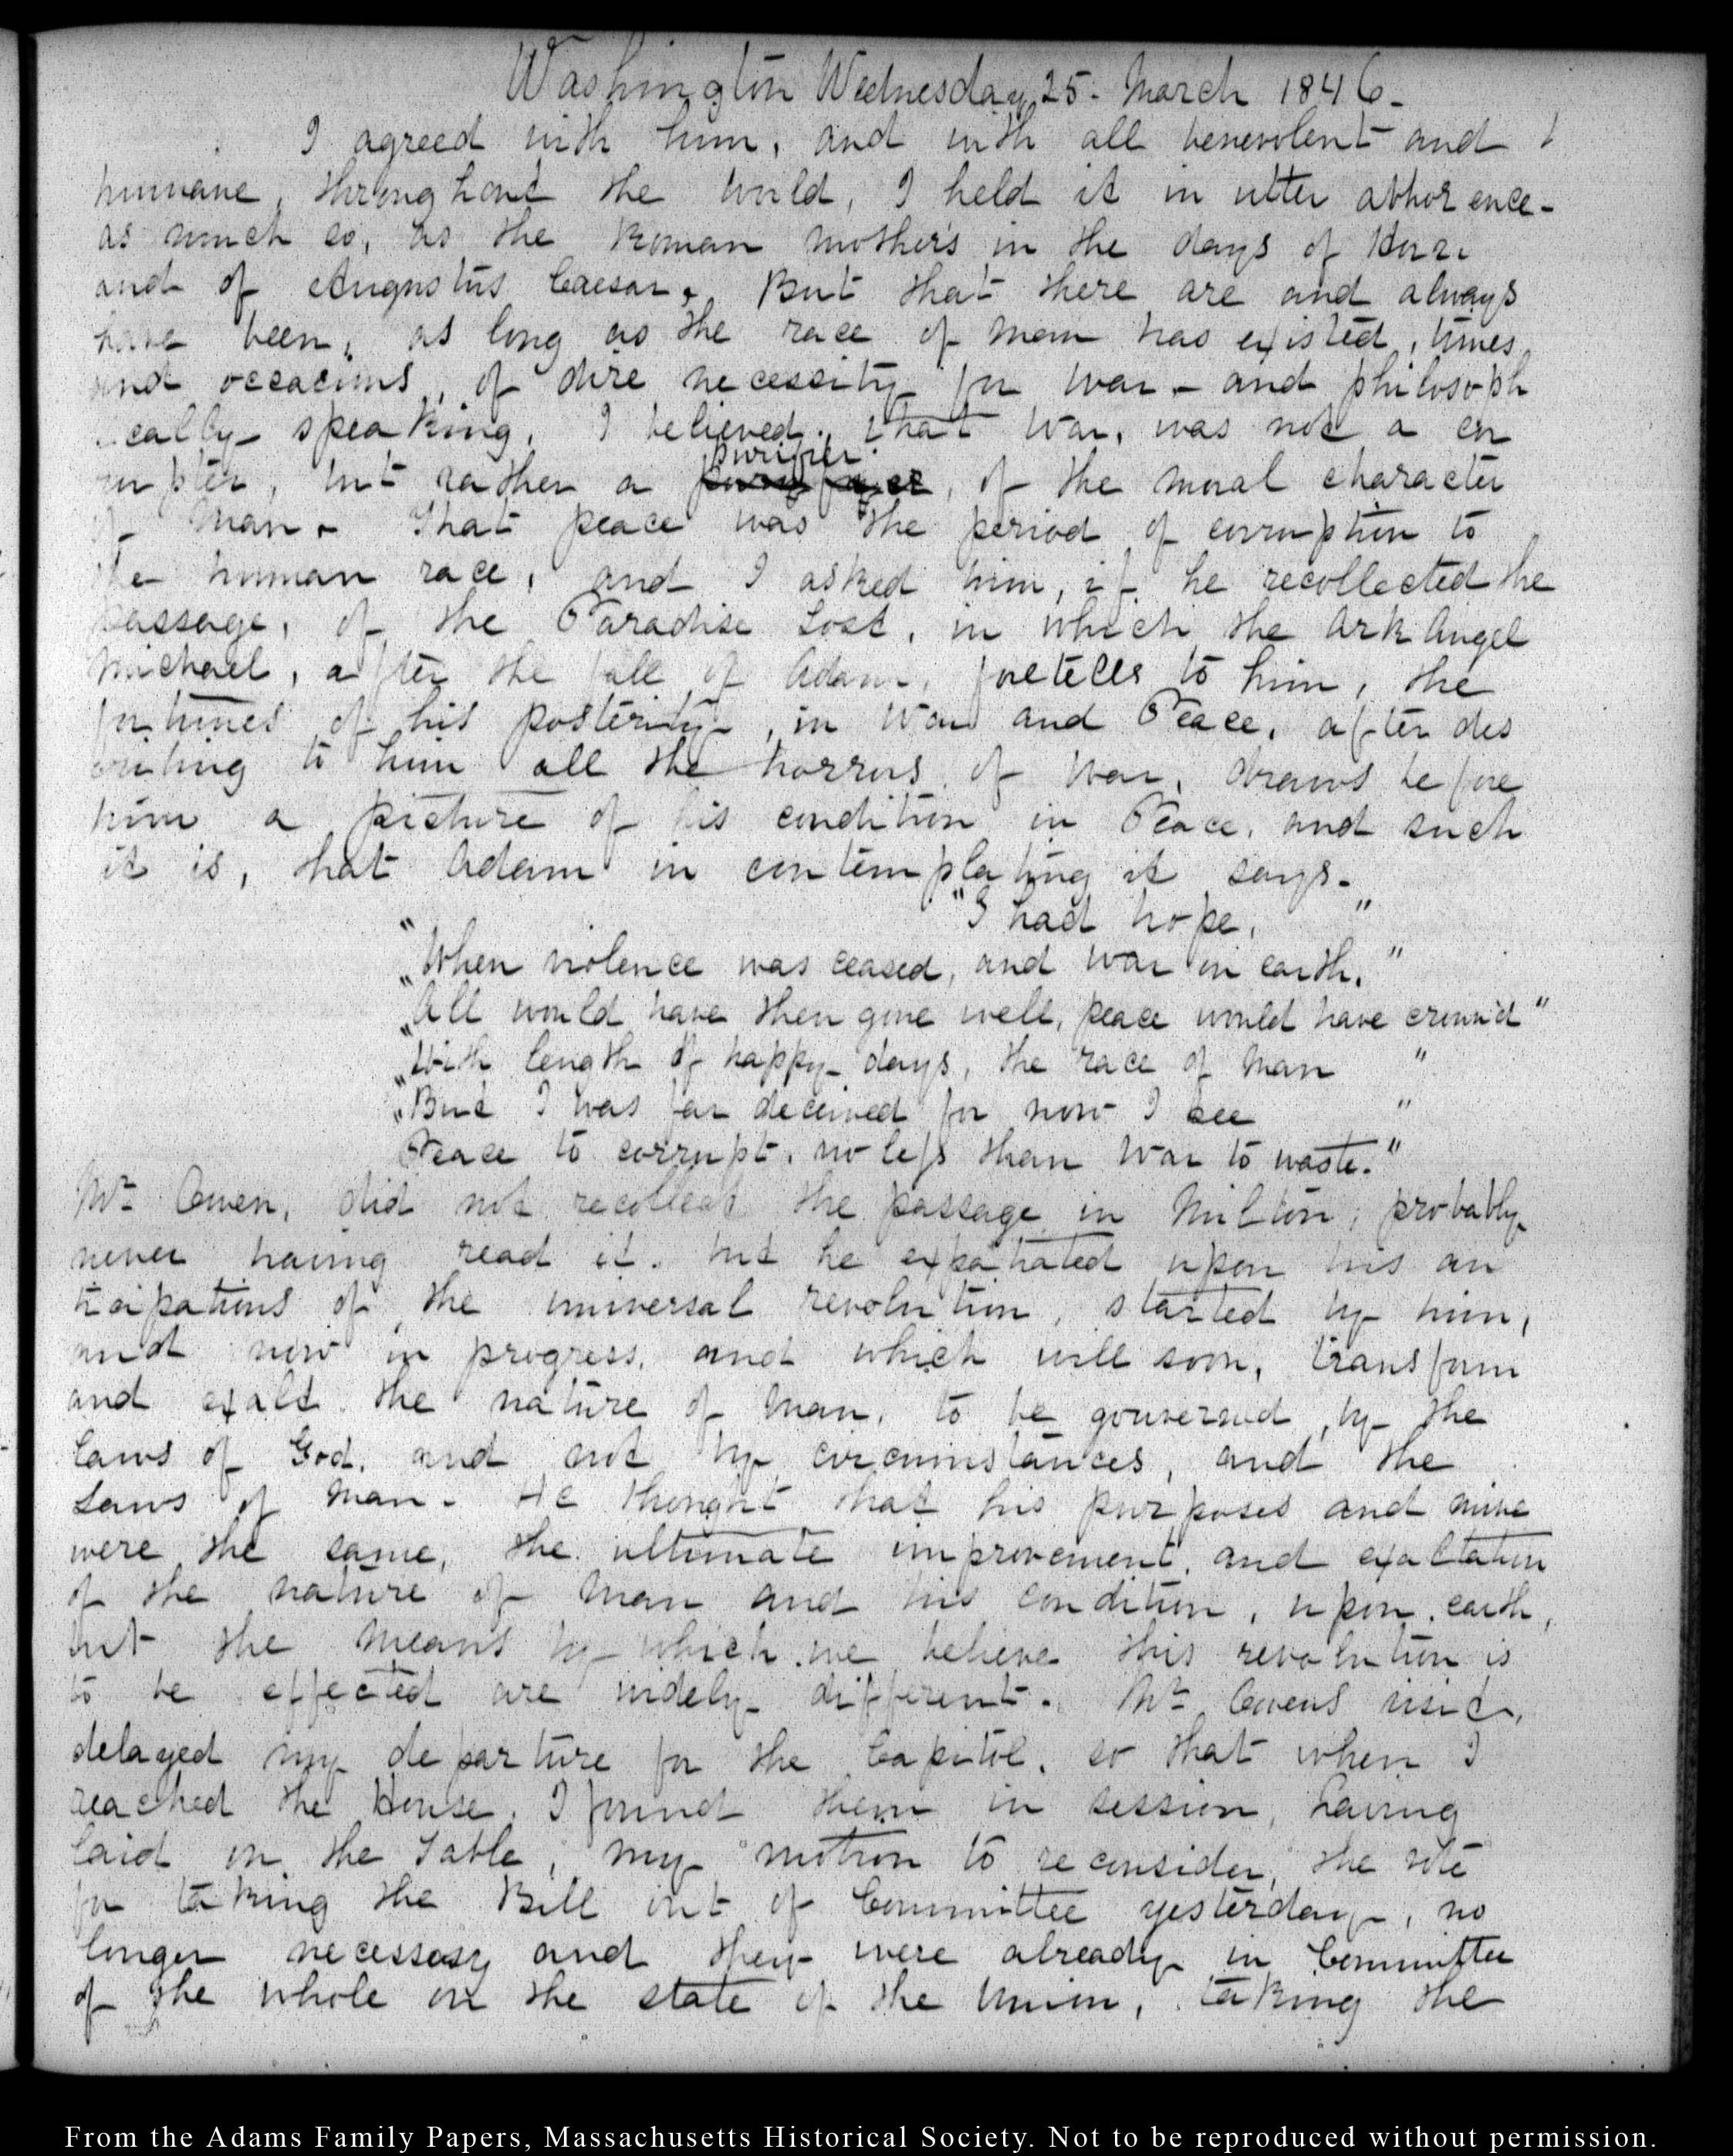 Washington Wednesday 25. March 1846.
I agreed with him, and with all benevolent and
humane, throughout the world, I held it in utter abhorence-
as much so, as the Roman mothers in the days of
and of Augustus Caesar. But that there are and always
have been, as long as the race of man has existed, times
and occacions, of dire necessity for war - and philosoph
ically speaking, I believed, that war, was not a cor
rupter, but rather a purifier, of the moral character
of man. That peace was the period of corruption to
the human race, and I asked him, if he recollected the
passage, of the Paradise Lost, in which the Ark Angel
Michael, after the fall of Adam, foretells to him, the
fortunes of his posterity, in War and Peace, after des
cribing to him all the horrors of war, draws before
him a picture of his condition in Peace, and such
it is, that Adam in contemplating it says-
"I had hope, "
"When violence was ceased, and war on earth,"
"All would have then gone well, peace would have crown'd"
"With length of happy days, the race of man "
"But I was far deceived for now I see "
Peace to corrupt, no less than war to waste."
Mr Owen, did not recollect the passage in Milton, probably
never having read it. but he expatiated upon his an
ticipations of the universal revolution, started by him,
and now in progress, and which will soon, transform
and exalt the nature of man, to be gouverned, by the
laws of God, and not by circumstances, and the
Laws of man. He thought that his purposes and mine
were the same, the ultimate improvement, and exaltation
of the nature of man and his condition, upon earth,
but the means by which we believe this revolution is
to be effected are widely different. Mr Owens visit,
delayed my departure for the Capitol, so that when I
reached the House, I found them in session, having
laid on the Table, my motion to reconsider, the vote
for taking the Bill out of Committee yesterday, no
longer necessary and they were already in Committee
of the whole on the state of the Union, taking the
From the Adams Family Papers, Massachusetts Historical Society. Not to be reproduced without permission.